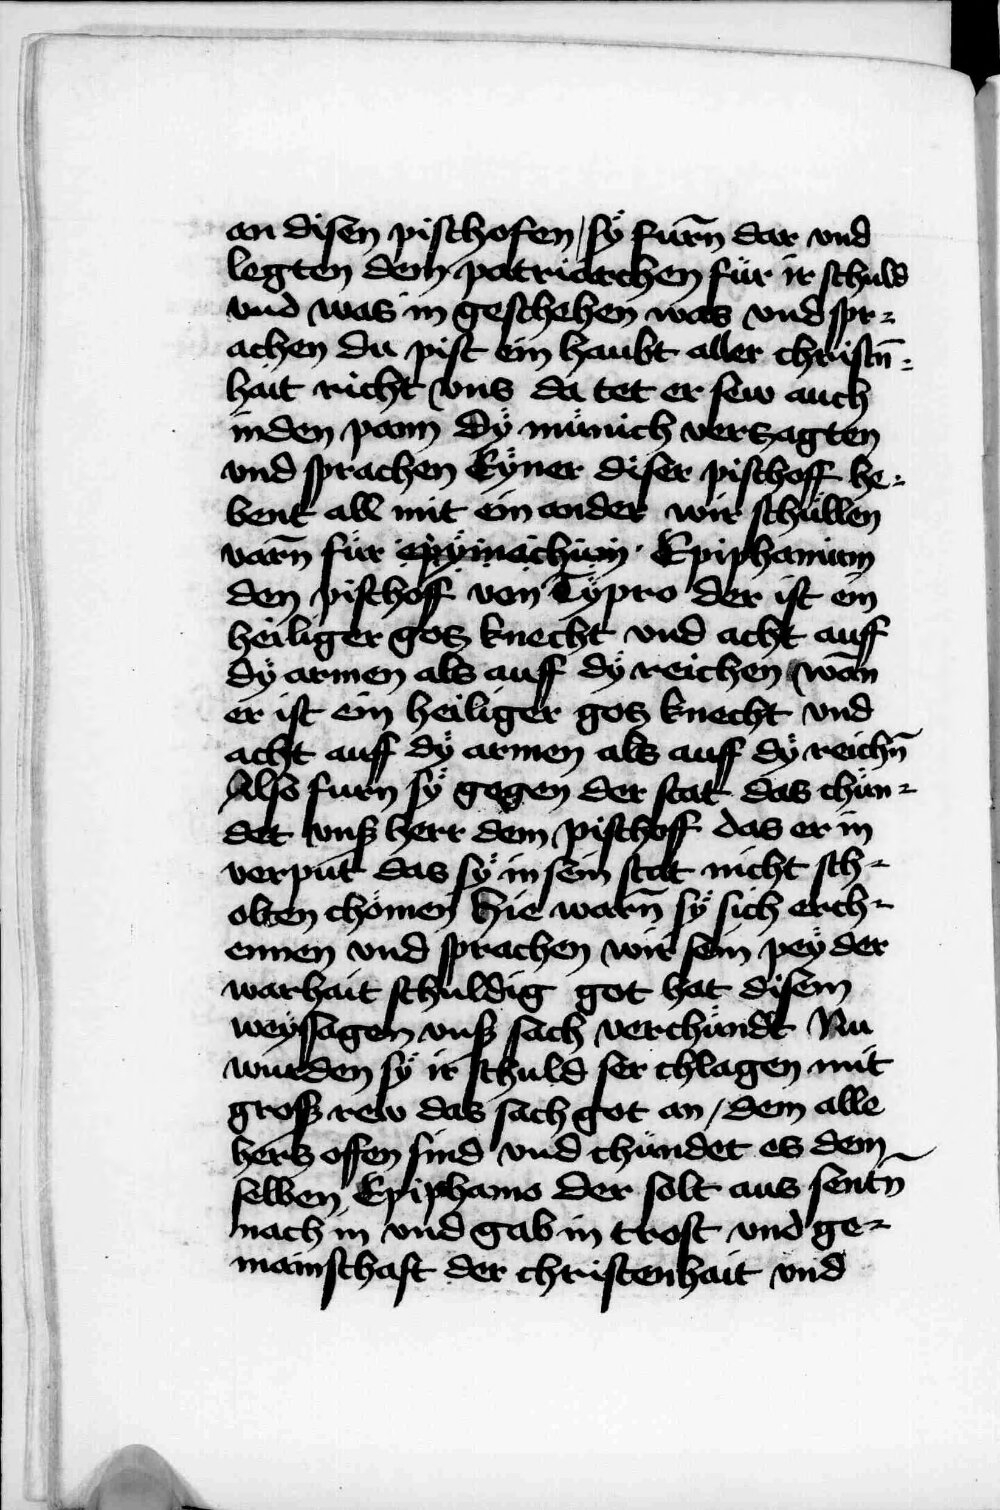 an disen pischofen / sÿ furn̄ dar vnd
legten dem patriarchen für ir schuld
vnd was in geschehen was vnd spr⸗
achen du pist ein haubt aller christn̄⸗
hait richt vns da tet er sew auch
inden pann Dÿ münich versagten
vnd sprachen Eÿner diser pischoff he⸗
bent all mit ein ander wir schüllen
varn̄ für Epiphanium
den pischoff von Cÿpro der ist ein
heiliger gotz knecht vnd acht auff
dÿ armen als auff dÿ reichen wan̄
er ist ein heiliger gotz knecht vnd
acht auff dÿ armen als auff dÿ reichn̄
Also furn sÿ gegen der stat das chün⸗
det vnß herr dem pischoff das er in
verput das sÿ in sein stat nicht sch⸗
olten chömen Hie warn̄ sÿ sich erch⸗
ennen vnd sprachen wir sein peÿ der
warhait schuldig got hat disem
weÿssagen vnß sach verchündt Nu
wurden sÿ ir schuld ser chlagen mit
groß rew das sach got an / dem alle
hertz offen sind vnd chündet es dem
selben Epiphanio der solt aus sentn̄
nach in vnd gab in trost vnd ge⸗
mainschaft der christenhait vnd